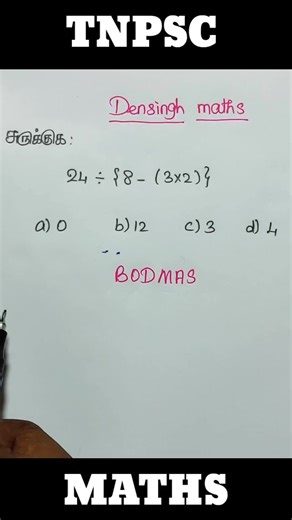 TNPSC
Densingh maths
சுருக்குக:
24 ÷ {8 - (3×2)}
a) 0 b) 12 c) 3 d) 4
BODMAS
MATHS